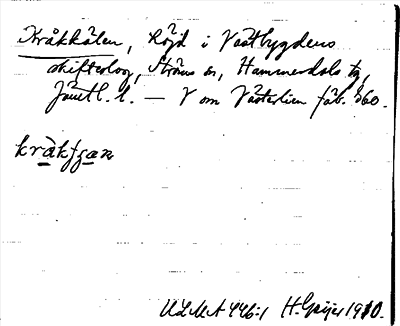 Kråkkälen, höjd i Västbygdens
skifteslag, Ströms sn, Hammerdals tg,
Jämtl. l. — V om Västerlien fäb. 360.
kråkɟʒan
ULMA 446:1 H. Geijer 1910.